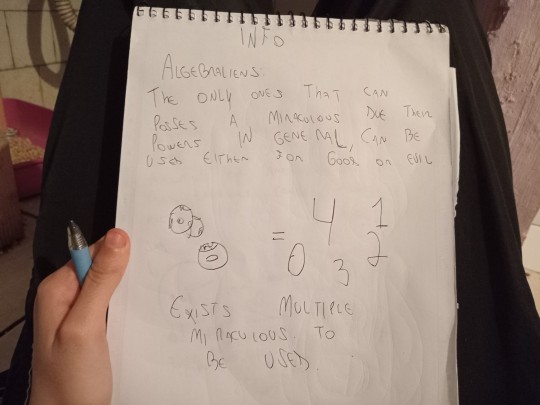 INFO
ALGEBRALIENS:
THE ONLY ONES THAT CAN
POSSES A MIRACULOUS DUE THEIR
POWERS IN GENERAL, CAN BE
USED EITHER FOR GOOD OR EVIL
= 4 1
0 3 2
EXISTS MULTIPLE
MIRACULOUS TO
BE USED.